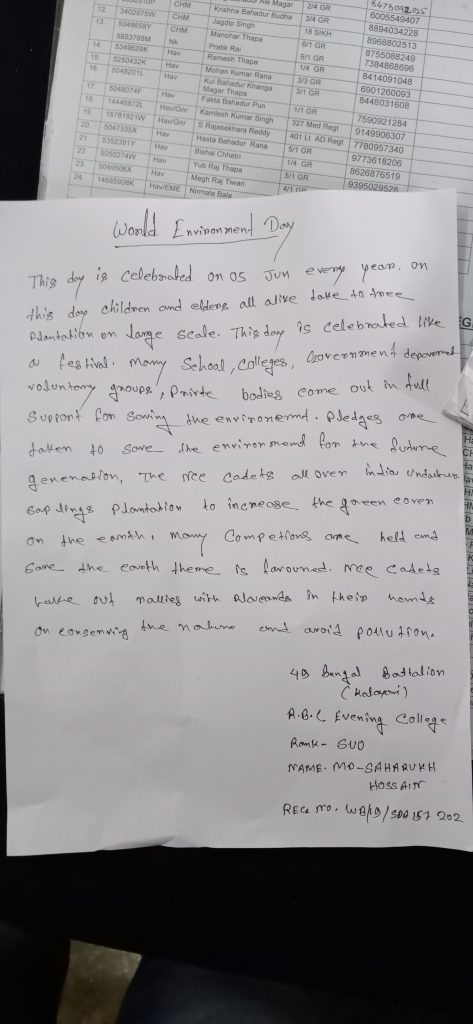 12 3402975W CHM Krishna Bahadur Budha 3/4 GR 6005549407
13 5049858Y CHM Jagdip Singh 18 SIKH 8894034228
5853795M Nk Manohar Thapa 5/1 GR 8968802513
14 5349629K Hav Pratik Rai 6/1 GR 8755088249
15 5250432K Hav Ramesh Thapa 1/4 GR 7384868696
16 5048201L Hav Mohan Kumar Rana 3/3 GR 8414091048
Kul Bahadur Khanga Magar Thapa 3/1 GR 6901260093
17 5048074F Hav Fakta Bahadur Pun 8448031608
18 14446872L Hav/Gnr Kamlesh Kumar Singh 1/1 GR 7590921284
19 15781921W Hav/Gnr S Rajasekhara Reddy 327 Med Regt 9149906307
20 5047335X Hav Hasta Bahadur Rana 401 Lt AD Regt 7780957340
21 5352391Y Hav Bishal Chhetri 5/1 GR 9773618206
22 5050274W Hav Yub Raj Thapa 1/4 GR 8626876519
23 5049506X Hav Megh Raj Tiwari 5/1 GR 9395029528
24 14685908K Hav/EME Nirmala Bala
World Environment Day
This day is celebrated on 05 Jun every year. on
this day children and elders all alive take to tree
Plantation on large scale. This day is celebrated like
a festival. many School, colleges, Government deparment
voluntary groups, Privte bodies come out in full
Support for saving the environemnd. Pledges are
taken to save the environmend for the future
generation, The Ncc cadets all over india
Sap lings Plantation to increase the green cover
on the earth, many Competions are held and
Save the earth theme is favouned. Ncc cadets
out rallies with in their hands
on conserving the nature and avoid pollution.
49 Bengal Battalion
(Kalayani)
R.B.C Evening College
Rank - SUO
NAME. MD-SAHARUKH
HOSSAIN